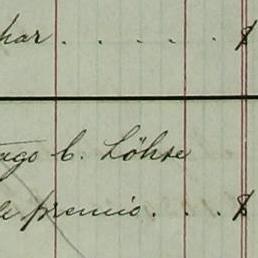 har . . . . . $
ago C. Löhse
le premio . . . $